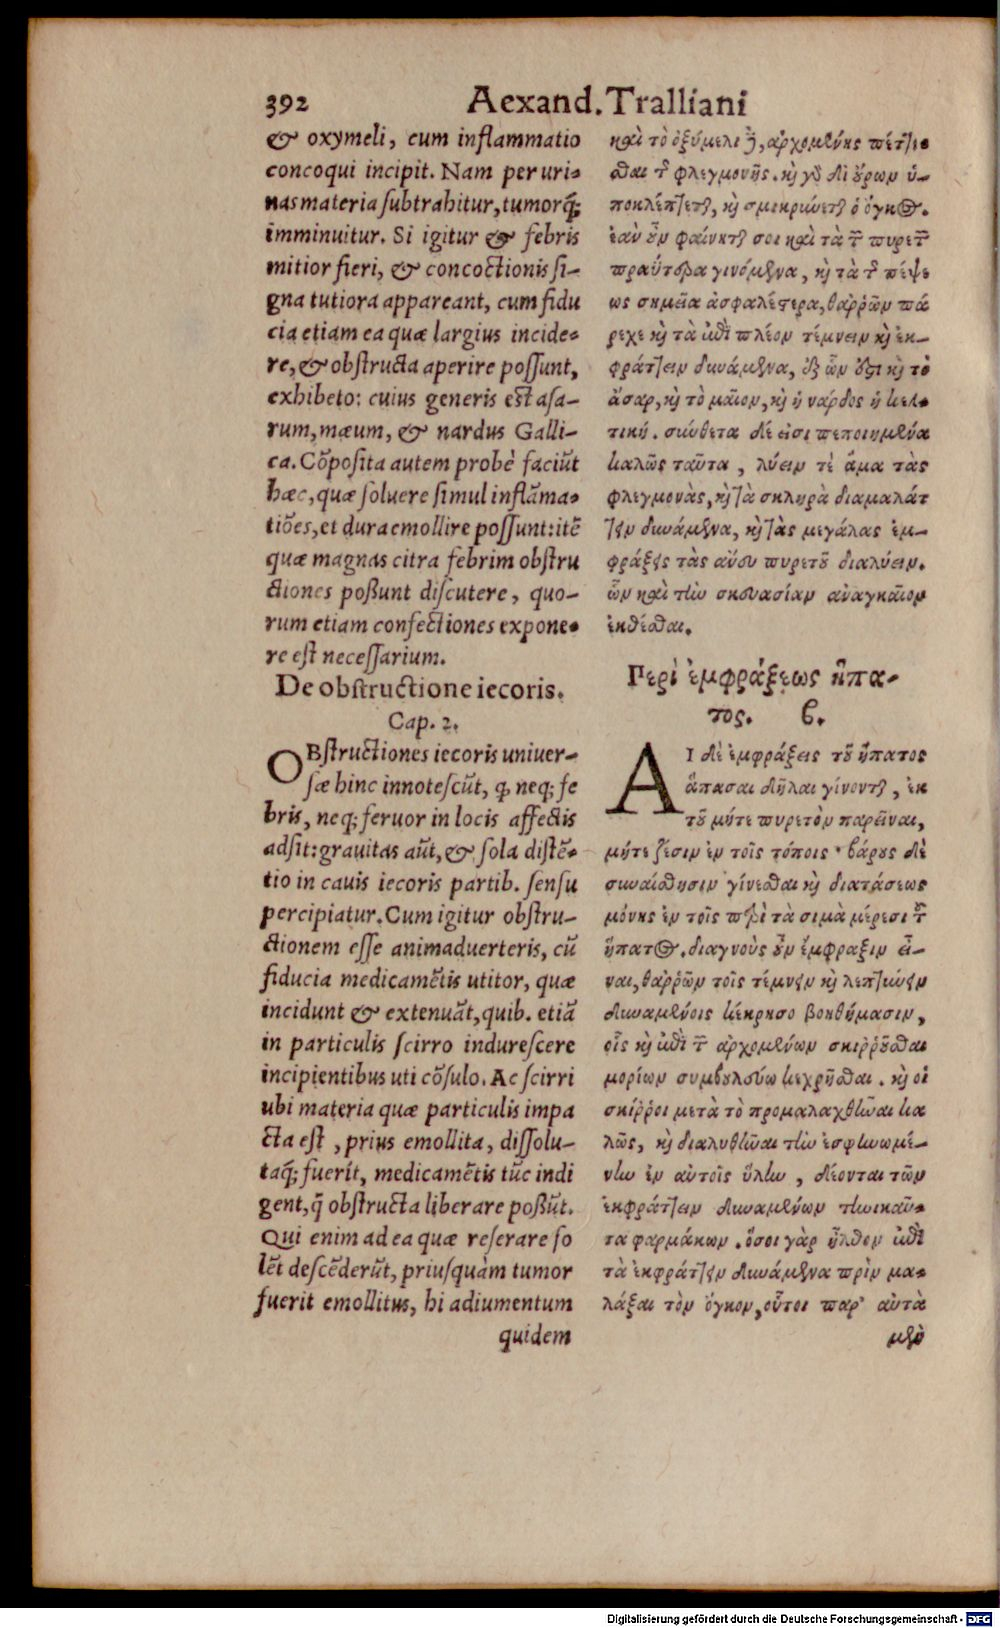 392 Aexand. Tralliani
& oxymeli, cum inflammatio
concoqui incipit. Nam per uri-
nas materia subtrahitur, tumorq́;
imminuitur. Si igitur & febris
mitior fieri, & concoctionis si-
gna tutiora appareant, cum fidu
cia etiam ea quæ largius incide-
re, & obstructa aperire possunt,
exhibeto: cuius generis est asa-
rum, mæum, & nardus Galli-
ca. Cõposita autem probè faciũt
hæc, quæ soluere simul inflãma-
tiões, et dura emollire possunt: itẽ
quæ magnas citra febrim obstru
ctiones possunt discutere, quo-
rum etiam confectiones expone-
re est necessarium.
De obstructione iecoris.
Cap. 2.
OBstructiones iecoris uniuer-
sæ hinc innotescũt, ꝙ neq; fe
bris, neq; feruor in locis affectis
adsit: grauitas aũt, & sola distẽ-
tio in cauis iecoris partib. sensu
percipiatur. Cum igitur obstru-
ctionem esse animaduerteris, cũ
fiducia medicamẽtis utitor, quæ
incidunt & extenuãt, quib. etiã
in particulis scirro indurescere
incipientibus uti cõsulo. Ac scirri
ubi materia quæ particulis impa
cta est, prius emollita, dissolu-
taq́; fuerit, medicamẽtis tũc indi
gent, q̃ obstructa liberare possũt.
Qui enim ad ea quæ reserare so
lẽt descẽderũt, priusquàm tumor
fuerit emollitus, hi adiumentum
quidem
καὶ τὸ ὀξύμελι ἐπὶ, ἀρχομένης πέττεσ
θαι τῆς φλεγμονῆς. καὶ γὰρ δι' οὔρων ὑ-
ποκλέπτεται, καὶ σμικρύνεται ὁ ὄγκος.
ἐὰν οὖν φαίνηταί σοι καὶ τὰ τῶν πυρετῶν
πραΰτερα γινόμενα, καὶ τὰ τῆς πέψε
ως σημεῖα ἀσφαλέστερα, θαῤῥῶν πά
ρεχε καὶ τὰ ἐπὶ πλέον τέμνειν καὶ ἐκ-
φράττειν δυνάμενα, ἐξ ὧν ἐστι καὶ τὸ
ἄσαρ, καὶ τὸ μαῖον, καὶ ἡ νάρδος ἡ κελ-
τική. σύνθετα δέ εἰσι πεποιημένα
καλῶς ταῦτα, λύειν τὲ ἅμα τὰς
φλεγμονὰς, καὶ τὰ σκληρὰ διαμαλάτ
τειν δυνάμενα, καὶ τὰς μεγάλας ἐμ-
φράξεις τὰς ἄνευ πυρετοῦ διαλύειν.
ὧν καὶ τὴν σκευασίαν ἀναγκαῖον
ἐκθέσθαι.
Περὶ ἐμφράξεως ἥπα-
τος. β.
ΑΙ δὲ ἐμφράξεις τοῦ ἥπατος
ἅπασαι δῆλαι γίνονται, ἐκ
τοῦ μήτε πυρετὸν παρεῖναι,
μήτε ζέσιν ἐν τοῖς τόποις· βάρους δὲ
συναίσθησιν γίνεσθαι καὶ διατάσεως
μόνης ἐν τοῖς περὶ τὰ σιμὰ μέρεσι τοῦ
ἥπατος. διαγνοὺς οὖν ἔμφραξιν εἶ-
ναι, θαῤῥῶν τοῖς τέμνειν καὶ λεπτύνειν
δυναμένοις κέχρησο βοηθήμασιν,
οἷς καὶ ἐπὶ τῶν ἀρχομένων σκιῤῥοῦσθαι
μορίων συμβουλεύω κεχρῆσθαι. καὶ οἱ
σκίῤῥοι μετὰ τὸ προμαλαχθῆναι κα
λῶς, καὶ διαλυθῆναι τὴν ἐσφηνωμέ-
νην ἐν αὐτοῖς ὕλην, δέονται τῶν
ἐκφράττειν δυναμένων τηνικαῦ-
τα φαρμάκων. ὅσοι γὰρ ἦλθον ἐπὶ
τὰ ἐκφράττειν δυνάμενα πρὶν μα-
λάξαι τὸν ὄγκον, οὗτοι παρ' αὐτὰ
μὲν
Digitalisierung gefördert durch die Deutsche Forschungsgemeinschaft - DFG